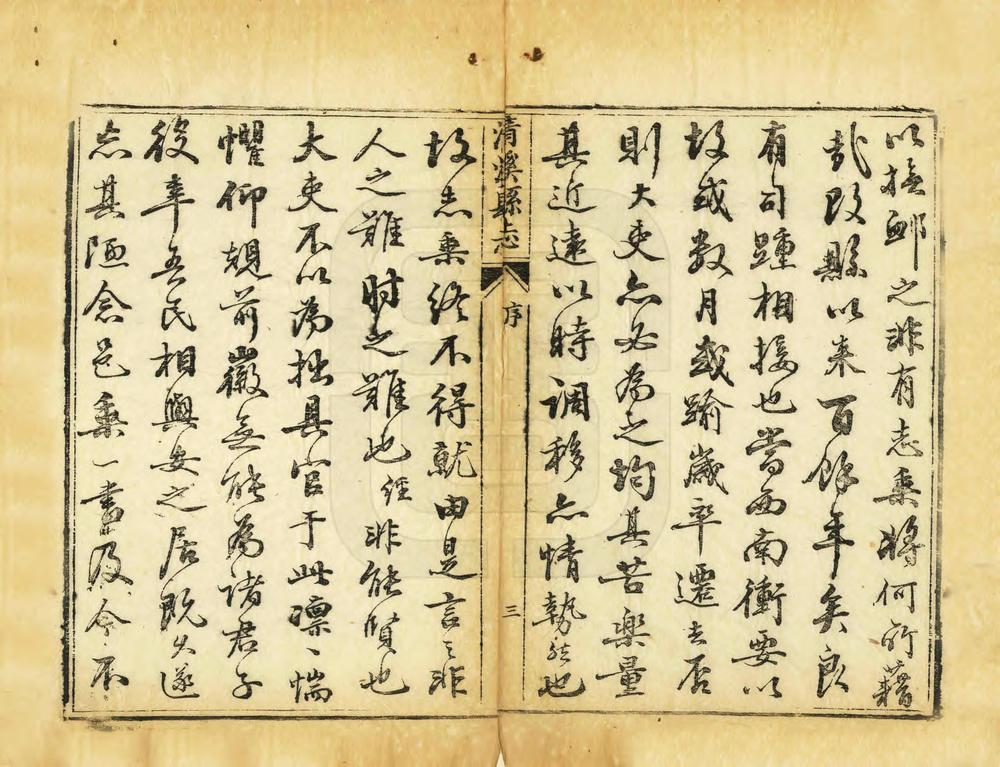 以撫邮之非有志乘將何所藉
哉改縣以来百餘年矣良
有司踵相接也當西南衝要以
故或数月或踰歲率遷去否
則大吏亦必為之均其苦樂量
其近遠以時調移亦情勢然也
清溪縣志
序
三
故志乘終不得就由是言之非
人之難時之難也經非能賢也
大吏不以為拙具官于此凛〻惴
懼仰規前徽無能為諸君子
後幸吾民相與安之居既久遂
忘其陋念邑乘一書及今不